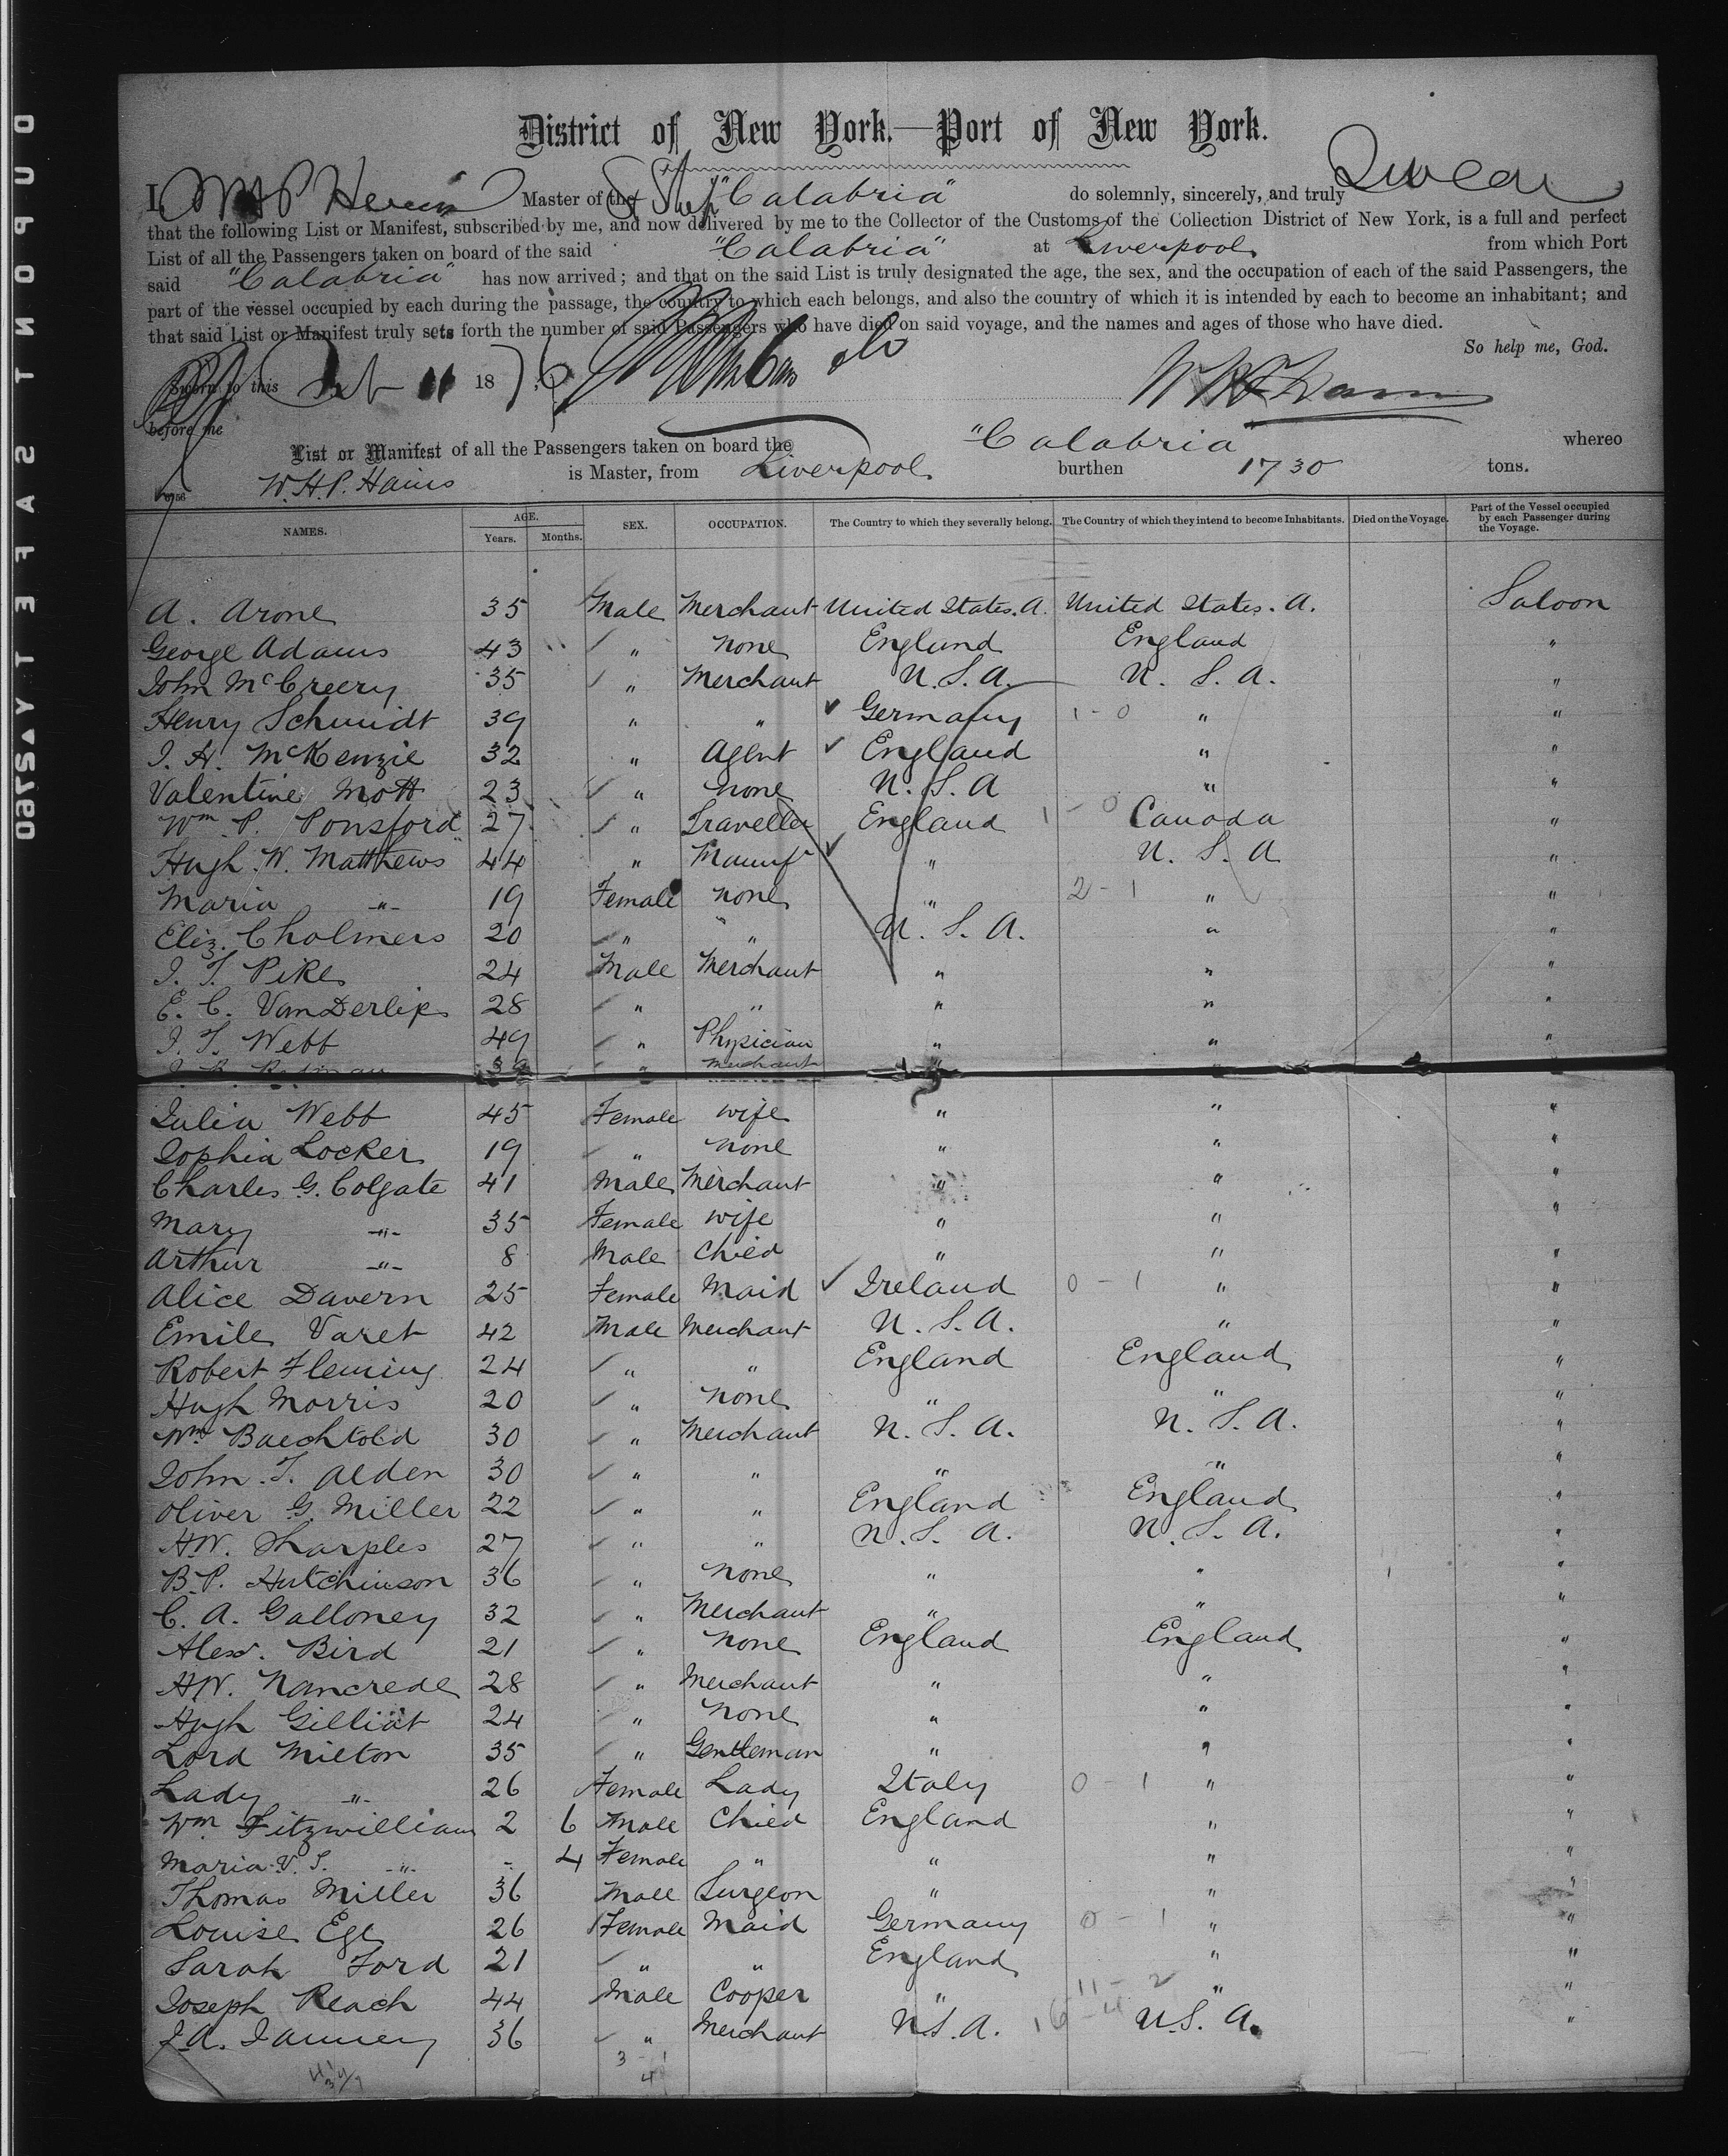 District of New York.—Port of New York.
I, Master of the "Calabria" do solemnly, sincerely, and truly Swear
that the following List or Manifest, subscribed by me, and now delivered by me to the Collector of the Customs of the Collection District of New York, is a full and perfect
List of all the Passengers taken on board of the said "Calabria" at Liverpool from which Port
said "Calabria" has now arrived; and that on the said List is truly designated the age, the sex, and the occupation of each of the said Passengers, the
part of the vessel occupied by each during the passage, the country to which each belongs, and also the country of which it is intended by each to become an inhabitant; and
that said List or Manifest truly sets forth the number of said Passengers who have died on said voyage, and the names and ages of those who have died.
So help me, God.
Sworn to this 11 1876
before me
List or Manifest of all the Passengers taken on board the "Calabria" whereo
W.H.P. Hains is Master, from Liverpool burthen 1730 tons.
NAMES. AGE. Years. Months. SEX. OCCUPATION. The Country to which they severally belong. The Country of which they intend to become Inhabitants. Died on the Voyage. Part of the Vessel occupied by each Passenger during the Voyage.
A. Arone 35 Male Merchant United States. A. United States. A. Saloon
George Adams 43 " none England England "
John McCreery 35 " Merchant U. S. A. U. S. A. "
Henry Schmidt 39 " " Germany 1-0 " "
J. H. McKenzie 32 " Agent England " "
Valentine Mott 23 " none U. S. A " "
Wm P. Ponsford 27 " Traveller England 1-0 Canada "
Hugh W. Matthews 44 " Manufr " U. S. A "
Maria " 19 Female none " 2-1 " "
Eliz. Cholmers 20 " " U. S. A. " "
J. T. Pike 24 Male Merchant " " "
E. C. VanDerlip 28 " " " " "
J. T. Webb 49 " Physician " " "
39 " Merchant
Julia Webb 45 Female wife " " "
Sophia Locker 19 " none " " "
Charles G. Colgate 41 Male Merchant " " "
Mary " 35 Female wife " " "
Arthur " 8 Male Child " " "
Alice Davern 25 Female Maid Ireland 0-1 " "
Emile Varet 42 Male Merchant U. S. A. " "
Robert Fleming 24 " " England England "
Hugh Morris 20 " none " " "
Wm Baechtold 30 " Merchant U. S. A. U. S. A. "
John. T. Alden 30 " " " " "
Oliver G. Miller 22 " " England England "
H.W. Sharples 27 " " U. S. A. U. S. A. "
B.P. Hutchinson 36 " none " " "
C. A. Galloney 32 " Merchant " " "
Alexr. Bird 21 " none England England "
H.W. Nancrede 28 " Merchant " " "
Hugh Gilliat 24 " none " " "
Lord Milton 35 " Gentleman " " "
Lady " 26 Female Lady Italy 0-1 " "
Wm Fitzwilliam 2 6 Male Child England " "
Maria V. S. " - 4 Female " " " "
Thomas Miller 36 Male Surgeon " " "
Louise Ege 26 Female Maid Germany 0-1 " "
Sarah Ford 21 " " England " "
Joseph Reach 44 Male Cooper " 11-2 " "
J.A. Janney 36 " Merchant U.S.A. U.S. A. "
3-1
4